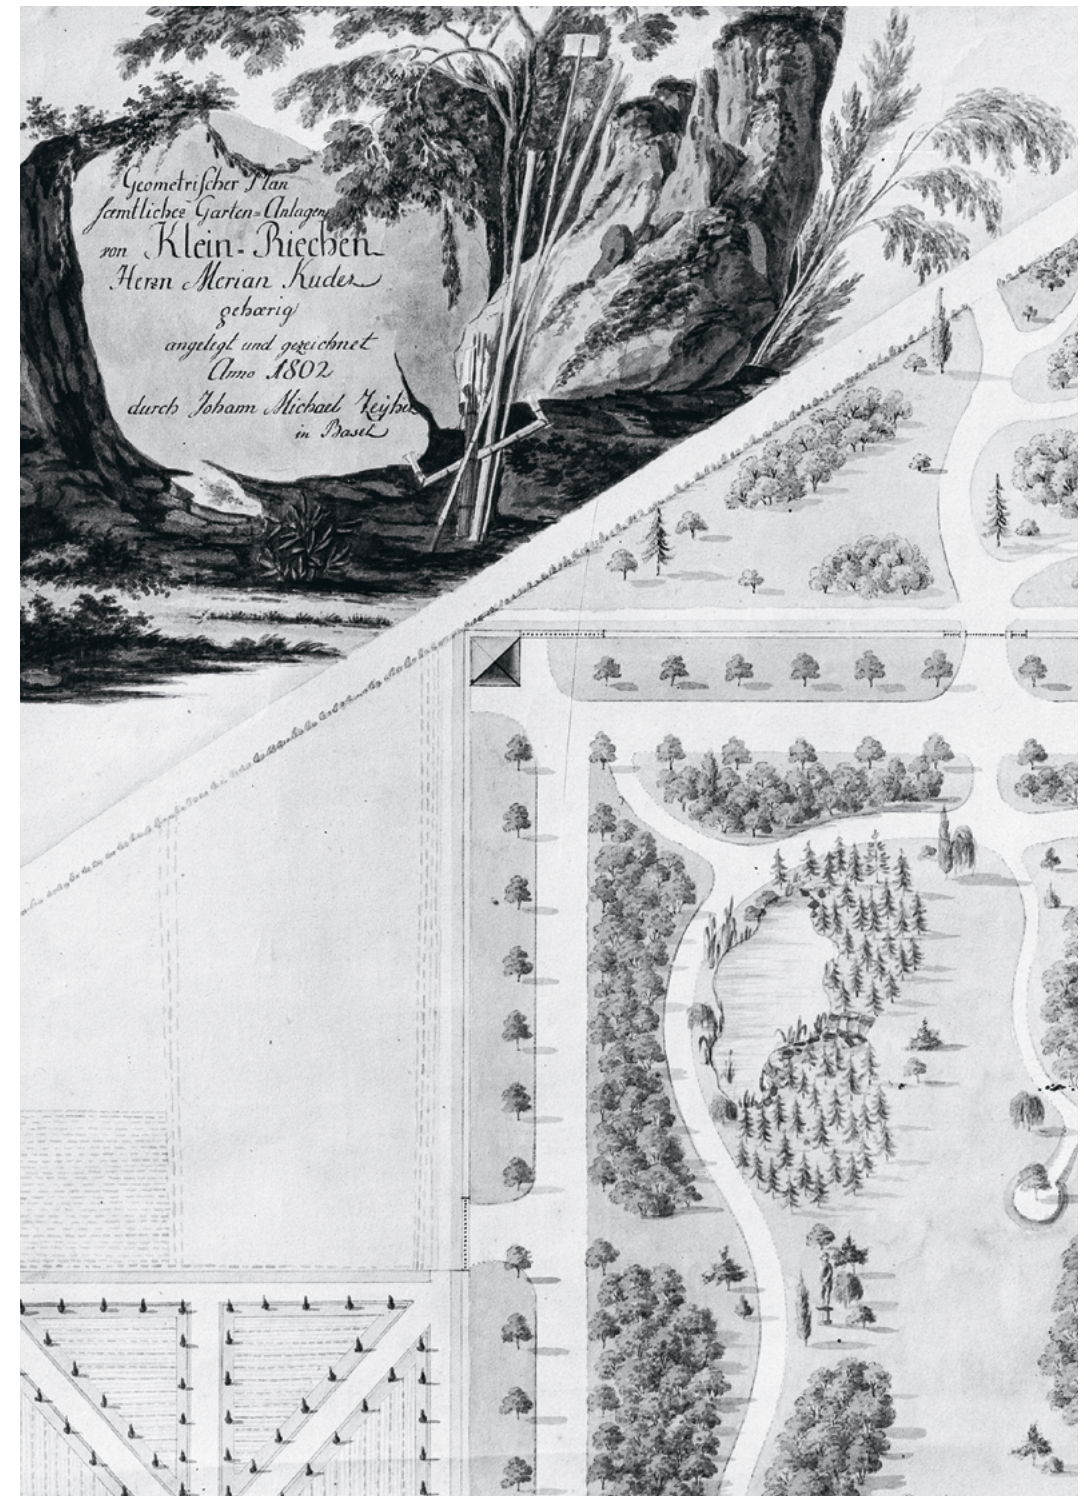 Geometrischer Plan
sæmtlicher Garten=Anlagen
von Klein-Riechen
Herrn Merian Kuder
gehœrig
angelegt und gezeichnet
Anno 1802
durch Johann Michael Zeyher
in Basel